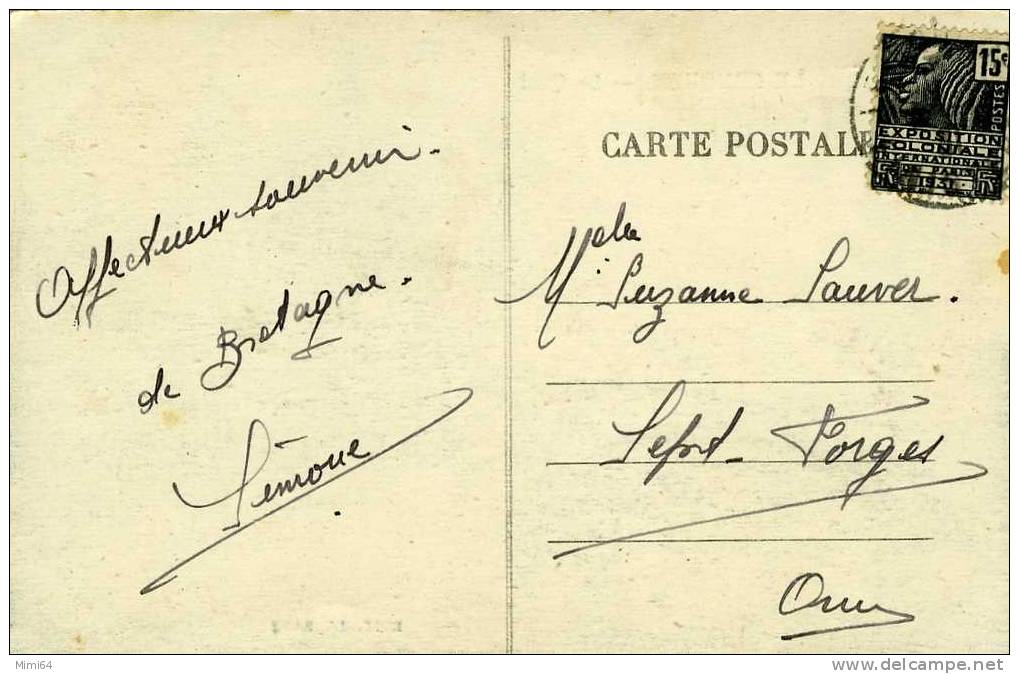 CARTE POSTALE
15c
POSTES
EXPOSITION
COLONIALE
INTERNATIONALE
DE PARIS
1931
Affectueux souvenir.
de Bretagne.
Simone
Melle Suzanne Sauver.
Sept-Forges
Orne
Mimi64
www.delcampe.net